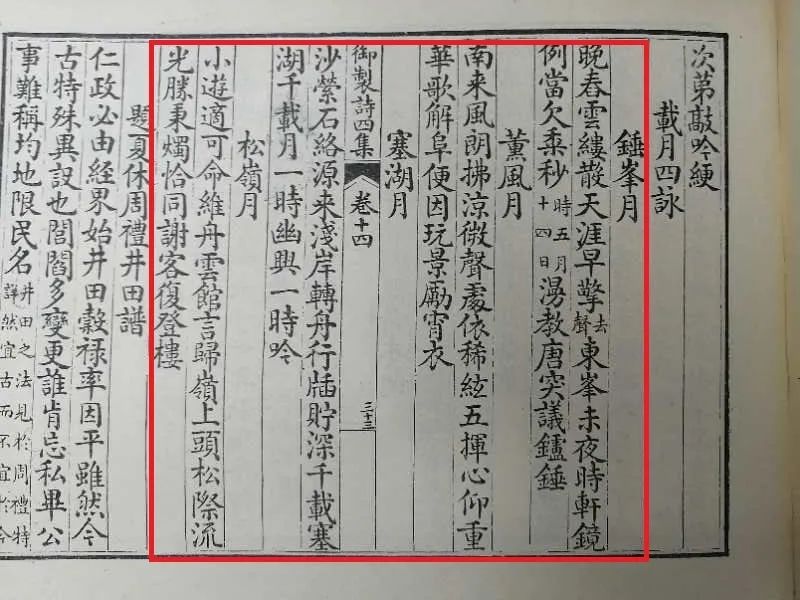 次第敲吟綆
載月四詠
錘峯月
晚春雲縷散天涯早擎去聲東峯未夜時軒鏡
例當欠黍秒時五月十四日漫教唐突議鑪錘
薰風月
南来風朗拂涼微聲處依稀絃五揮心仰重
華歌解阜便因玩景勵宵衣
塞湖月
御製詩四集 卷十四 三十三
沙縈石絡源来淺岸轉舟行牐貯深千載塞
湖千載月一時幽興一時吟
松嶺月
小遊適可命維舟雲館言歸嶺上頭松際流
光勝秉燭恰同謝客復登樓
題夏休周禮井田譜
仁政必由經界始井田穀禄率因平雖然今
古特殊異設也閭閻多變更誰肯忘私畢公
事難稱均地限民名井田之法見於周禮特詳然宜古而不宜於今